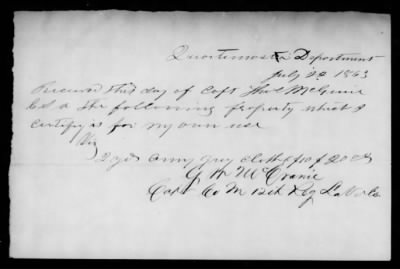 Quartermaster Department
July 22 1863
Received this day of Capt Thos McGuire
the following property which I
certify is for my own use
Viz
2 yds Army Grey cloth $10 $20.00
McCranie
Capt Co M 12th Reg La Vols